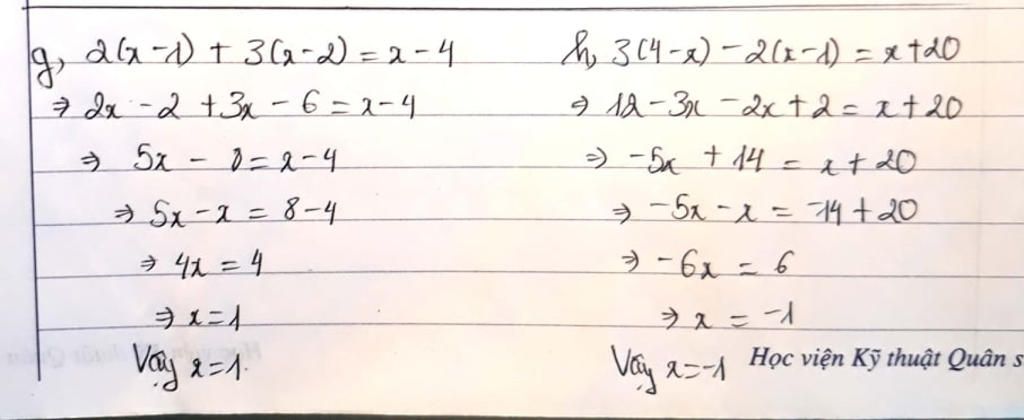 g, 2(x-1) + 3(x-2) = x - 4
⇒ 2x - 2 + 3x - 6 = x - 4
⇒ 5x - 8 = x - 4
⇒ 5x - x = 8 - 4
⇒ 4x = 4
⇒ x = 1
Vậy x = 1.
h, 3(4-x) - 2(x-1) = x + 20
⇒ 12 - 3x - 2x + 2 = x + 20
⇒ -5x + 14 = x + 20
⇒ -5x - x = -14 + 20
⇒ -6x = 6
⇒ x = -1
Vậy x = -1
Học viện Kỹ thuật Quân s